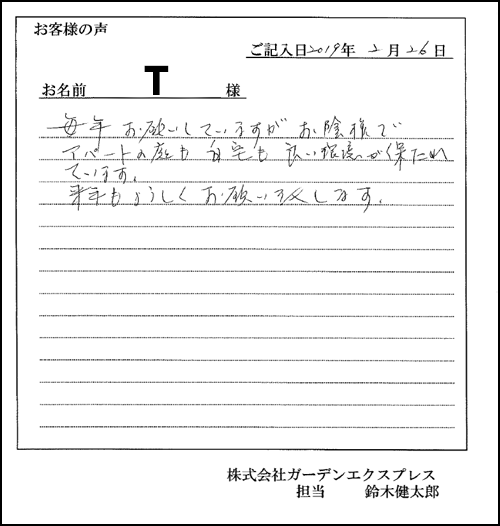 お客様の声
ご記入日2019年 2月26日
お名前 T 様
毎年お願いしていますがお陰様で
アパートの庭も自宅も良い環境が保たれ
ています。
来年もよろしくお願い致します。
株式会社ガーデンエクスプレス
担当 鈴木健太郎